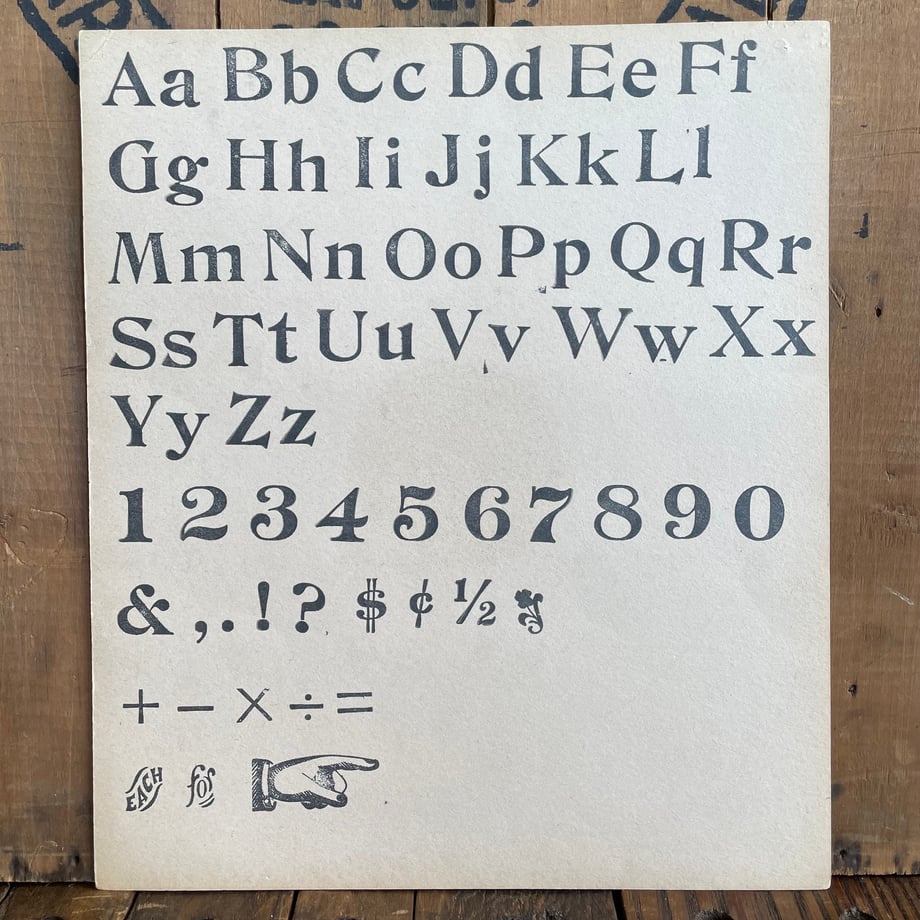 Aa Bb Cc Dd Ee Ff
Gg Hh Ii Jj Kk Ll
Mm Nn Oo Pp Qq Rr
Ss Tt Uu Vv Ww Xx
Yy Zz
1 2 3 4 5 6 7 8 9 0
& , . ! ? $ ¢ ½
+ − × ÷ =
EACH for